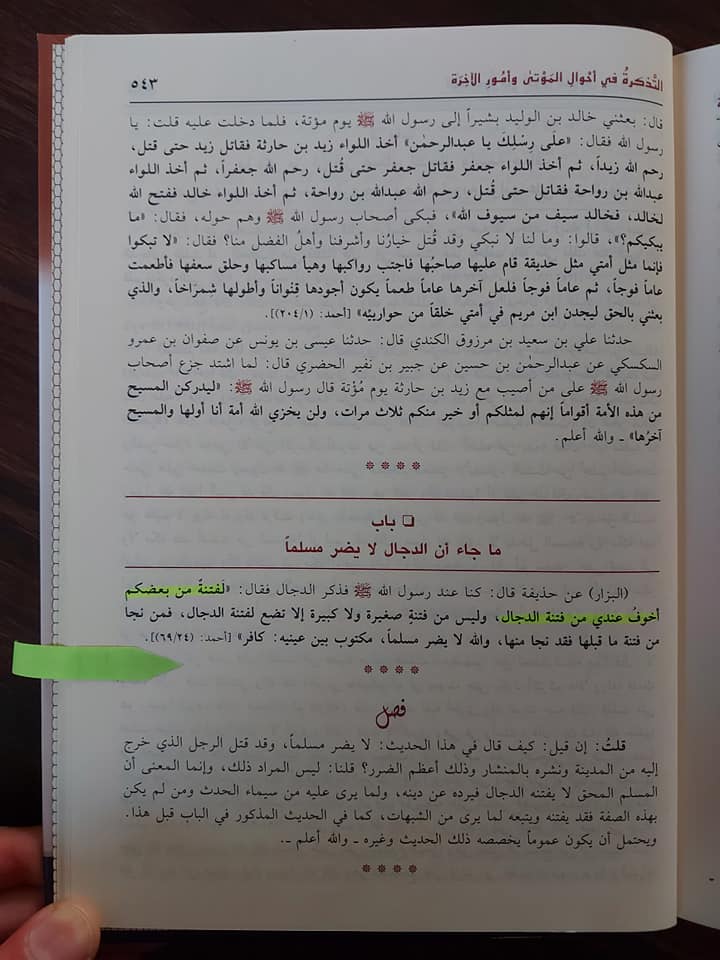 التَّذكرةُ في أحْوالِ المَوْتىٰ وأمُورِ الآخِرَة ٥٤٣
قال: بعثني خالد بن الوليد بشيراً إلى رسول الله ﷺ يوم مؤتة، فلما دخلت عليه قلت: يا
رسول الله فقال: «علَى رِسْلِكَ يا عبدالرحمٰن» أخذ اللواء زيد بن حارثة فقاتل زيد حتى قتل،
رحم الله زيداً، ثم أخذ اللواء جعفر فقاتل جعفر حتى قُتل، رحم الله جعفراً، ثم أخذ اللواء
عبدالله بن رواحة فقاتل حتى قُتل، رحم الله عبدالله بن رواحة، ثم أخذ اللواء خالد ففتح الله
لخالد، فخالد سيف من سيوف الله»، فبكى أصحاب رسول الله ﷺ وهم حوله، فقال: «ما
يبكيكم؟»، قالوا: وما لنا لا نبكي وقد قُتل خيارُنا وأشرفنا وأهلُ الفضل منا؟ فقال: «لا تبكوا
فإنما مثل أمتي مثل حديقة قام عليها صاحبُها فاجتب رواكبها وهيأ مساكبها وحلق سعفها فأطعمت
عاماً فوجاً، ثم عاماً فوجاً فلعل آخرها عاماً طعماً يكون أجودها قِنْواناً وأطولها شِمرَاخاً، والذي
بعثني بالحق ليجدن ابن مريم في أمتي خلفاً من حوارييّه» [أحمد: (٢٠٤/١)].
حدثنا علي بن سعيد بن مرزوق الكندي قال: حدثنا عيسى بن يونس عن صفوان بن عمرو
السكسكي عن عبدالرحمٰن بن حسين عن جبير بن نفير الحضري قال: لما اشتد جزع أصحاب
رسول الله ﷺ على من أصيب مع زيد بن حارثة يوم مُؤتة قال رسول الله ﷺ: «ليدركن المسيح
من هذه الأمة أقواماً إنهم لمثلكم أو خير منكم ثلاث مرات، ولن يخزي الله أمة أنا أولها والمسيح
آخرُها» ـ والله أعلم.
❑ باب
ما جاء أن الدجال لا يضر مسلماً
(البزار) عن حذيفة قال: كنا عند رسول الله ﷺ فذكر الدجال فقال: «لَفتنةٌ من بعضكم
أخوفُ عندي من فتنة الدجال، وليس من فتنةٍ صغيرة ولا كبيرة إلا تضع لفتنة الدجال، فمن نجا
من فتنة ما قبلها فقد نجا منها، والله لا يضر مسلماً، مكتوب بين عينيه: كافر» [أحمد: (٦٩/٢٤)].
فصل
قلتُ: إن قيل: كيف قال في هذا الحديث: لا يضر مسلماً، وقد قتل الرجل الذي خرج
إليه من المدينة ونشره بالمنشار وذلك أعظم الضرر؟ قلنا: ليس المراد ذلك، وإنما المعنى أن
المسلم المحق لا يفتنه الدجال فيرده عن دينه، ولما يرى عليه من سيماء الحدث ومن لم يكن
بهذه الصفة فقد يفتنه ويتبعه لما يرى من الشبهات، كما في الحديث المذكور في الباب قبل هذا.
ويحتمل أن يكون عموماً يخصصه ذلك الحديث وغيره ـ والله أعلم ـ.